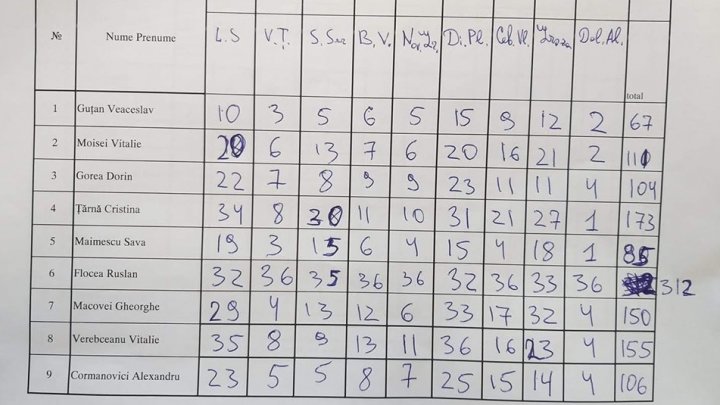 № Nume Prenume L.S V.Ț. S.Ser B.V. Di.Pl. Ceb.Vl. Dol.Al. total
1 Guțan Veaceslav 10 3 5 6 5 15 9 12 2 67
2 Moisei Vitalie 20 6 13 7 6 20 16 21 2 111
3 Gorea Dorin 22 7 8 9 9 23 11 11 4 104
4 Țărnă Cristina 34 8 30 11 10 31 21 27 1 173
5 Maimescu Sava 19 3 15 6 4 15 4 18 1 85
6 Flocea Ruslan 32 36 35 36 36 32 36 33 36 312
7 Macovei Gheorghe 29 4 13 12 6 33 17 32 4 150
8 Verebceanu Vitalie 35 8 9 13 11 36 16 23 4 155
9 Cormanovici Alexandru 23 5 5 8 7 25 15 14 4 106